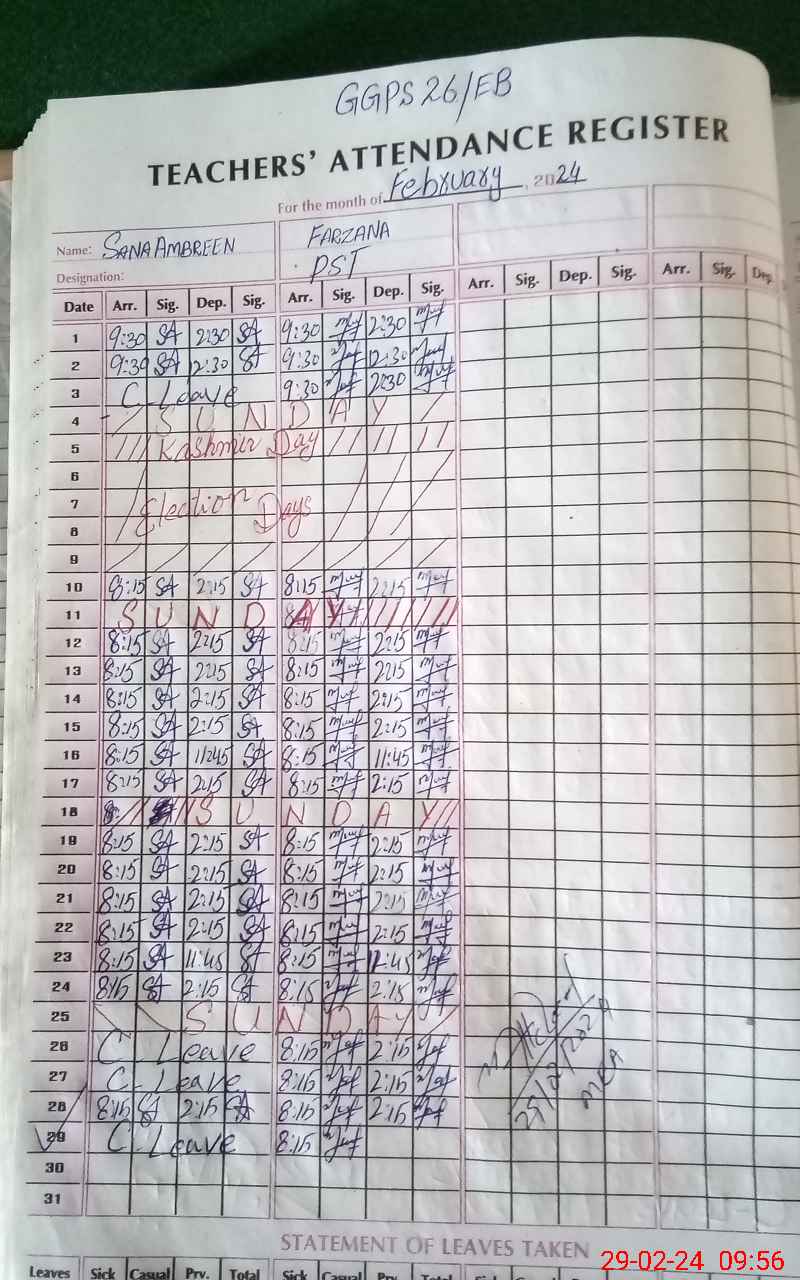 GGPS 26/EB
TEACHERS' ATTENDANCE REGISTER
For the month of February, 2024
Name: SANA AMBREEN FARZANA
Designation: PST
Date Arr. Sig. Dep. Sig. Arr. Sig. Dep. Sig. Arr. Sig. Dep. Sig. Arr. Sig. Dep.
1 9:30 SA 2:30 SA 9:30 2:30
2 9:30 SA 12:30 SA 9:30 12:30
3 C. Leave 9:30 2:30
4 SUNDAY
5 Kashmir Day
6
7 Election Days
8
9
10 8:15 SA 2:15 SA 8:15 2:15
11 SUNDAY
12 8:15 SA 2:15 SA 8:15 2:15
13 8:15 SA 2:15 SA 8:15 2:15
14 8:15 SA 2:15 SA 8:15 2:15
15 8:15 SA 2:15 SA 8:15 2:15
16 8:15 SA 11:45 SA 8:15 11:45
17 8:15 SA 2:15 SA 8:15 2:15
18 SUNDAY
19 8:15 SA 2:15 SA 8:15 2:15
20 8:15 SA 2:15 SA 8:15 2:15
21 8:15 SA 2:15 SA 8:15 2:15
22 8:15 SA 2:15 SA 8:15 2:15
23 8:15 SA 11:45 SA 8:15 11:45
24 8:15 SA 2:15 SA 8:15 2:15
25 SUNDAY
26 C. Leave 8:15 2:15
27 C. Leave 8:15 2:15
28 8:15 SA 2:15 SA 8:15 2:15
29 C. Leave 8:15
30
31
MEA
STATEMENT OF LEAVES TAKEN
Leaves Sick Casual Prv. Total Sick Casual Prv. Total
29-02-24 09:56